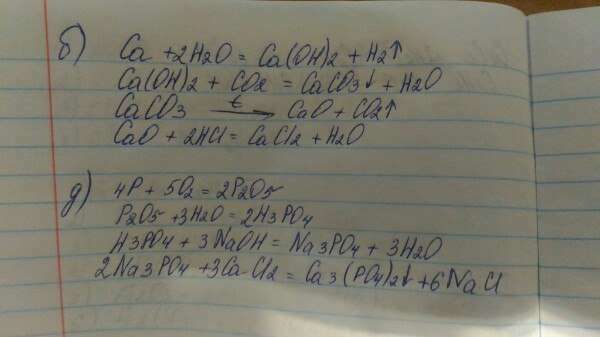 б)
Ca + 2H2O = Ca(OH)2 + H2↑
Ca(OH)2 + CO2 = CaCO3↓ + H2O
CaCO3 t→ CaO + CO2↑
CaO + 2HCl = CaCl2 + H2O
д)
4P + 5O2 = 2P2O5
P2O5 + 3H2O = 2H3PO4
H3PO4 + 3NaOH = Na3PO4 + 3H2O
2Na3PO4 + 3CaCl2 = Ca3(PO4)2↓ + 6NaCl